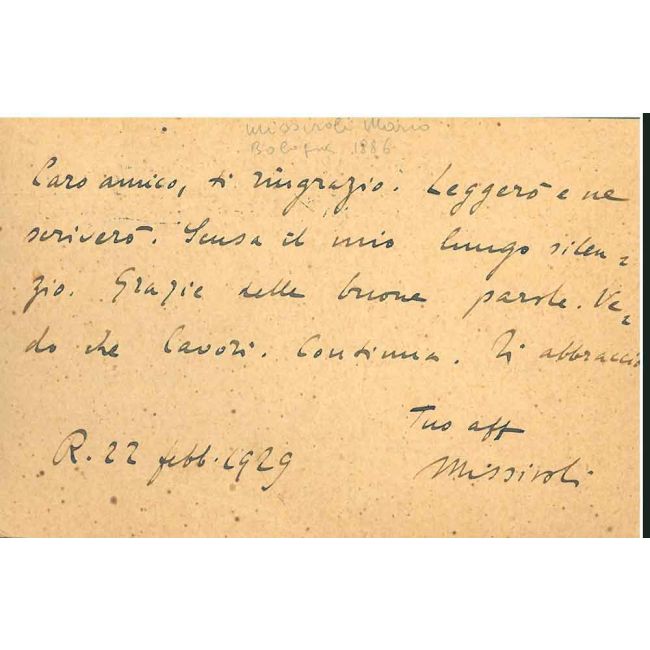 Missiroli Mario
Bologna 1886
Caro amico, ti ringrazio. Leggerò e ne
scriverò. Scusa il mio lungo silen=
zio. Grazie delle buone parole. Ve=
do che lavori. Continua. Ti abbraccio
Tuo aff
Missiroli
R. 22 febb. 1929